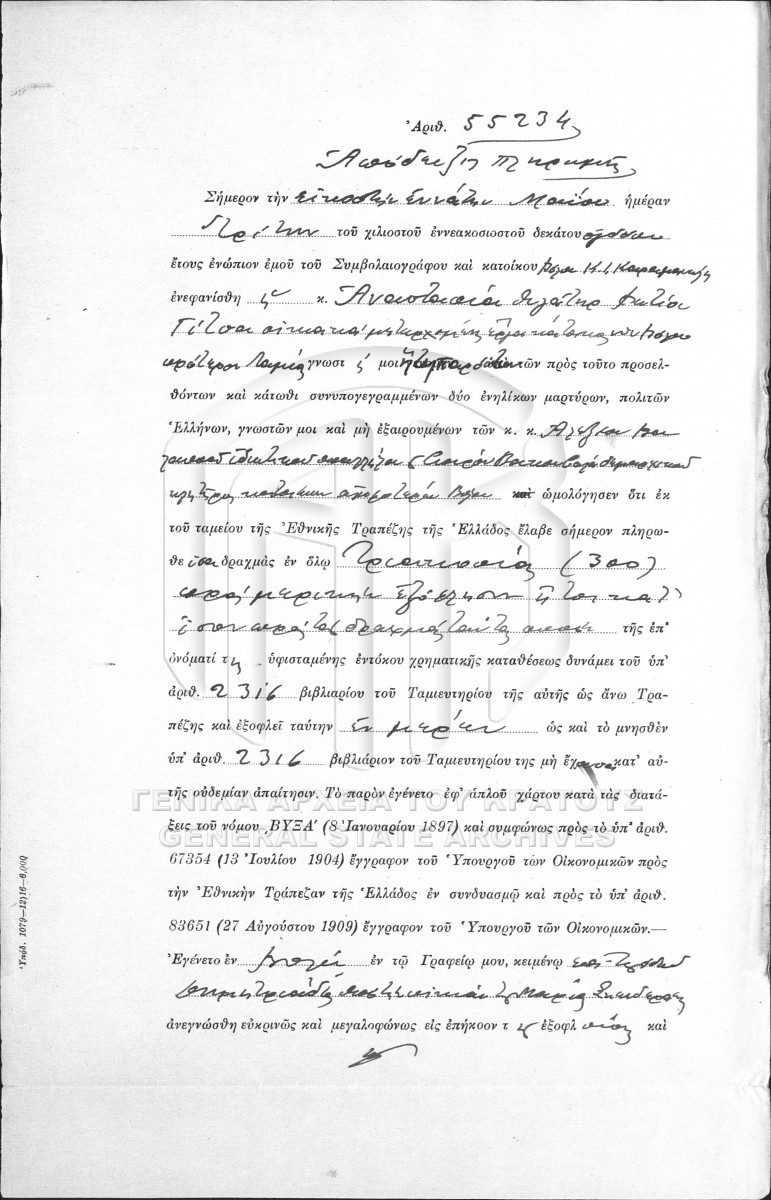 Ἀριθ. 55234
Ἀπόδειξις πληρωμῆς
Σήμερον τὴν εἰκοστὴν ἐννάτην Μαΐου ἡμέραν
Τρίτην τοῦ χιλιοστοῦ ἐννεακοσιοστοῦ δεκάτου ὀγδόου
ἔτους ἐνώπιον ἐμοῦ τοῦ Συμβολαιογράφου καὶ κατοίκου Βόλου
ἐνεφανίσθη ἡ κ. Ἀναστασία θυγάτηρ Φωτίου
Γίτσα οἰκιακὰ μετερχομένη κάτοικος
πρότερον Λαμίας γνωστή μοι τῶν πρὸς τοῦτο προσελ-
θόντων καὶ κάτωθι συνυπογεγραμμένων δύο ἐνηλίκων μαρτύρων, πολιτῶν
Ἑλλήνων, γνωστῶν μοι καὶ μὴ ἐξαιρουμένων τῶν κ. κ. Ἀλεξίου
ἰδιωτικοῦ ὑπαλλήλου
κλητῆρος κατοίκων ἀμφοτέρων Βόλου καὶ ὡμολόγησεν ὅτι ἐκ
τοῦ ταμείου τῆς Ἐθνικῆς Τραπέζης τῆς Ἑλλάδος ἔλαβε σήμερον πληρω-
θεῖσα δραχμὰς ἐν ὅλῳ Τριακοσίας (300)
πρὸς μερικὴν ἐξόφλησιν ἤτοι κατ᾽
ἴσον πρὸς τὰς δραχμὰς ταύτας ποσὸν τῆς ἐπ᾽
ὀνόματί της ὑφισταμένης ἐντόκου χρηματικῆς καταθέσεως δυνάμει τοῦ ὑπ᾽
ἀριθ. 2316 βιβλιαρίου τοῦ Ταμιευτηρίου τῆς αὐτῆς ὡς ἄνω Τρα-
πέζης καὶ ἐξοφλεῖ ταύτην ἐν μέρει ὡς καὶ τὸ μνησθὲν
ὑπ᾽ ἀριθ. 2316 βιβλιάριον τοῦ Ταμιευτηρίου της μὴ ἔχουσα κατ᾽ αὐ-
τῆς οὐδεμίαν ἀπαίτησιν. Τὸ παρὸν ἐγένετο ἐφ᾽ ἁπλοῦ χάρτου κατὰ τὰς διατά-
ΓΕΝΙΚΑ ΑΡΧΕΙΑ ΤΟΥ ΚΡΑΤΟΥΣ
ξεις τοῦ νόμου ͵ΒΥΞΑ´ (8 Ἰανουαρίου 1897) καὶ συμφώνως πρὸς τὸ ὑπ᾽ ἀριθ.
GENERAL STATE ARCHIVES
67354 (13 Ἰουλίου 1904) ἔγγραφον τοῦ Ὑπουργοῦ τῶν Οἰκονομικῶν πρὸς
τὴν Ἐθνικὴν Τράπεζαν τῆς Ἑλλάδος ἐν συνδυασμῷ καὶ πρὸς τὸ ὑπ᾽ ἀριθ.
83651 (27 Αὐγούστου 1909) ἔγγραφον τοῦ Ὑπουργοῦ τῶν Οἰκονομικῶν.—
Ἐγένετο ἐν Βόλῳ ἐν τῷ Γραφείῳ μου, κειμένῳ
Μαρίας
ἀνεγνώσθη εὐκρινῶς καὶ μεγαλοφώνως εἰς ἐπήκοον τ ἐξοφλ καὶ
Ὑπόδ. 1079—12)16—6,000